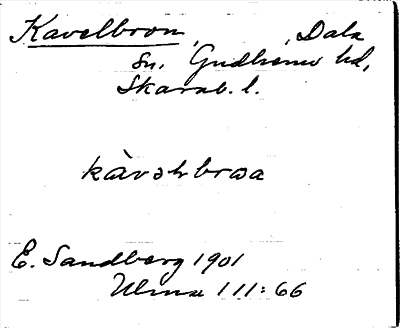 Kavelbron, , Dala
sn. Gudhems hd,
Skarab. l.
kàvəlbrωa
E. Sandberg 1901
Ulma 111:66